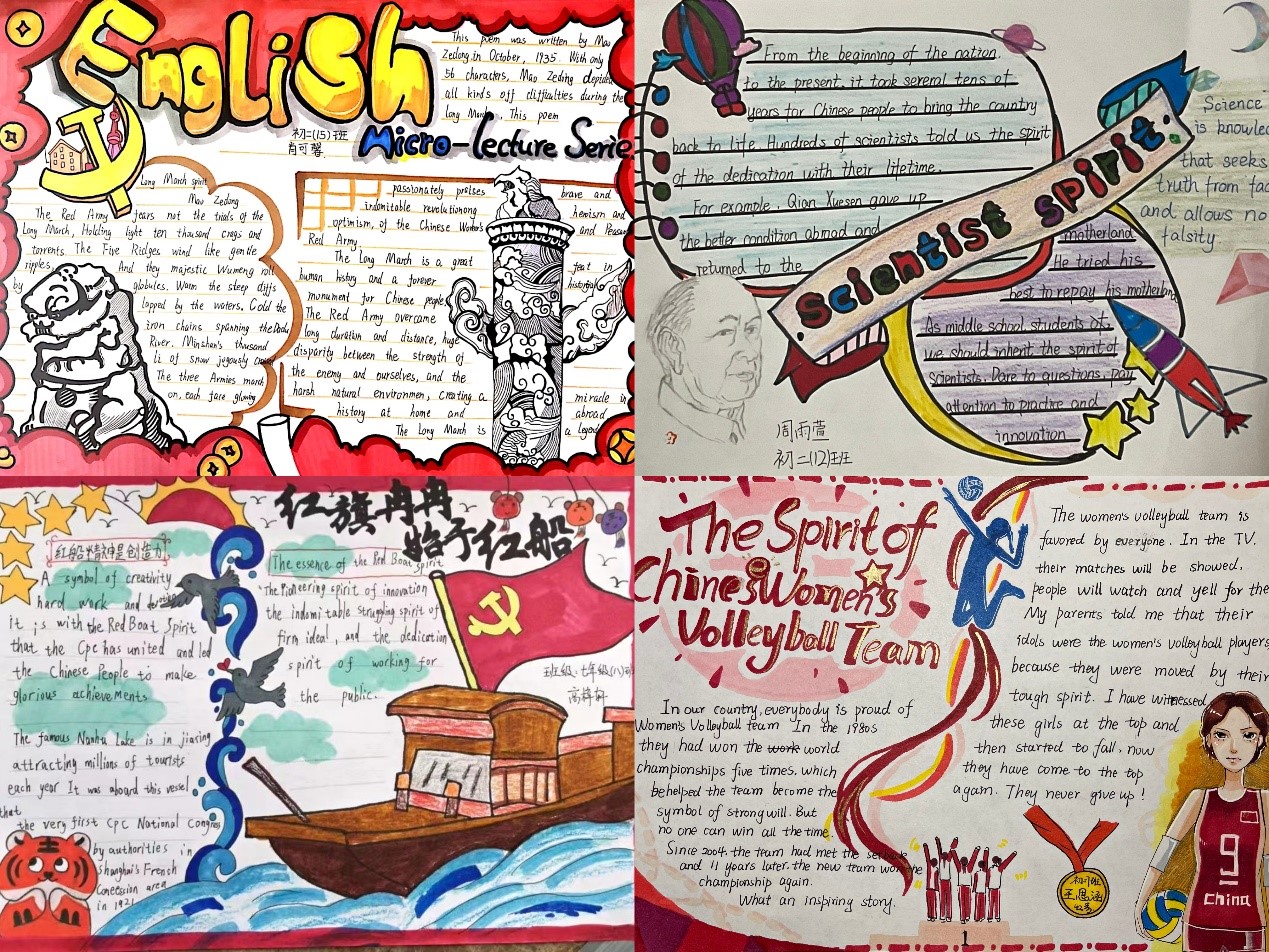 English
Micro-lecture Serie
初一(15)班
肖可馨
This poem was written by Mao
Zedong in October, 1935. With only
56 characters, Mao Zedong depided
all kinds off difficulties during the
Long March. This poem
Long March spirit
Mao Zedong
The Red Army fears not the trials of the
Long March, Holding light ten thousand crags and
torrents. The Five Ridges wind like gentle
ripples, And they majestic Wumeng roll
by globules. Warm the steep cliffs
lapped by the waters. Cold the
iron chains spanning the Dadu
River. Minshan's thousand
li of snow joyously crossed
The three Armies march
on, each face glowing
passionately praises brave and
indomitable revolutionong heroism and
optimism, of the Chinese Worker's and Peasan
Red Army.
The Long March is a great feat in
human history and a forever historical
monument for Chinese people
The Red Army overcame
long duration and distance, huge
disparity between the strength of
the enemy and ourselves, and the
harsh natural environmen, creating a miracle in
history at home and abroad
The Long March is a legend
From the beginning of the nation.
to the present, it took sereml tens of
years for Chinese people to bring the country
back to life. Hundreds of scientists told us the spirit
of the dedication with their lifetime.
For example, Qian Xuesen gave up
the better condition abroad and
returned to the
Scientist spirit
motherland
He tried his
best to repay his motherland
As middle school students of,
we should inherit the spirit of
scientists. Dare to questions, pay
attention to practice and
innovation
Science
is knowlec
that seeks
truth from fac
and allows no
falsity
周雨萱
初二(12)班
红旗冉冉
始于红船
红船精神是创造力
A symbol of creativity
hard work and
it is with the Red Boat Spirit
that the Cpc has united and led
the Chinese People to make
glorious achievements
The famous Nanhu Lake is in jiaxing
attracting millions of tourists
each year It was aboard this vessel
that
the very first CPC National Congress
by authorities in
Shanghai's French
Concession area
in 1921
The essence of the Red Boat spirit
the Pioneering spirit of innovation
the indomitable struggling spirit of
firm ideal, and the dedication
spirit of working for
the public.
班级:七年级(八)班
高梓轩
The Spirit of
Chines Women's
Volleyball Team
In our country, everybody is proud of
Women's Volleyball team In the 1980s
they had won the work world
championships five times. which
behelped the team become the
symbol of strong will. But
no one can win all the time.
Since 2004. the team had met the setback
and 11 years later. the new team won the
championship again.
What an inspiring story.
The women's volleyball team is
favored by everyone. In the TV.
their matches will be showed,
people will watch and yell for the
My parents told me that their
idols were the women's volleyball players
because they were moved by their
tough spirit. I have witnessed
these girls at the top and
then started to fall, now
they have come to the top
again. They never give up!
王思涵
9
China
1